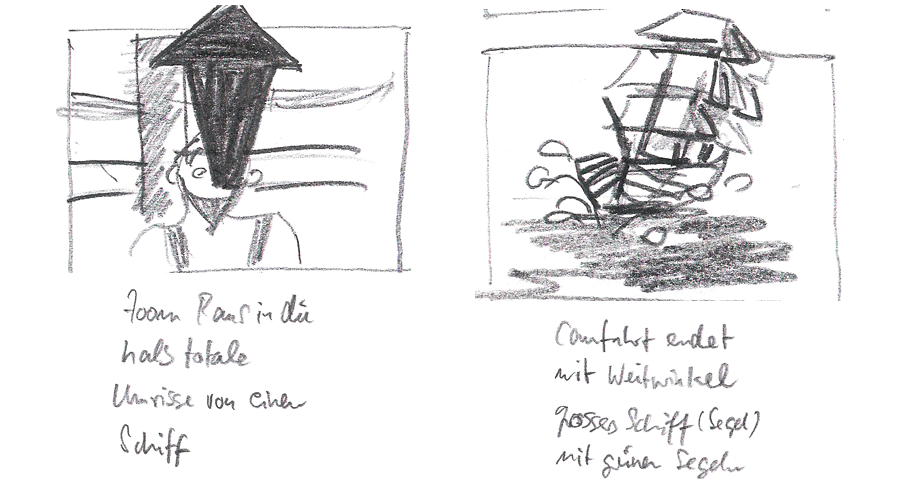 Zoom Raus in die
halb totale
Umrisse von einem
Schiff
Camfahrt endet
mit Weitwinkel
grosses Schiff (Segel)
mit grünen Segeln